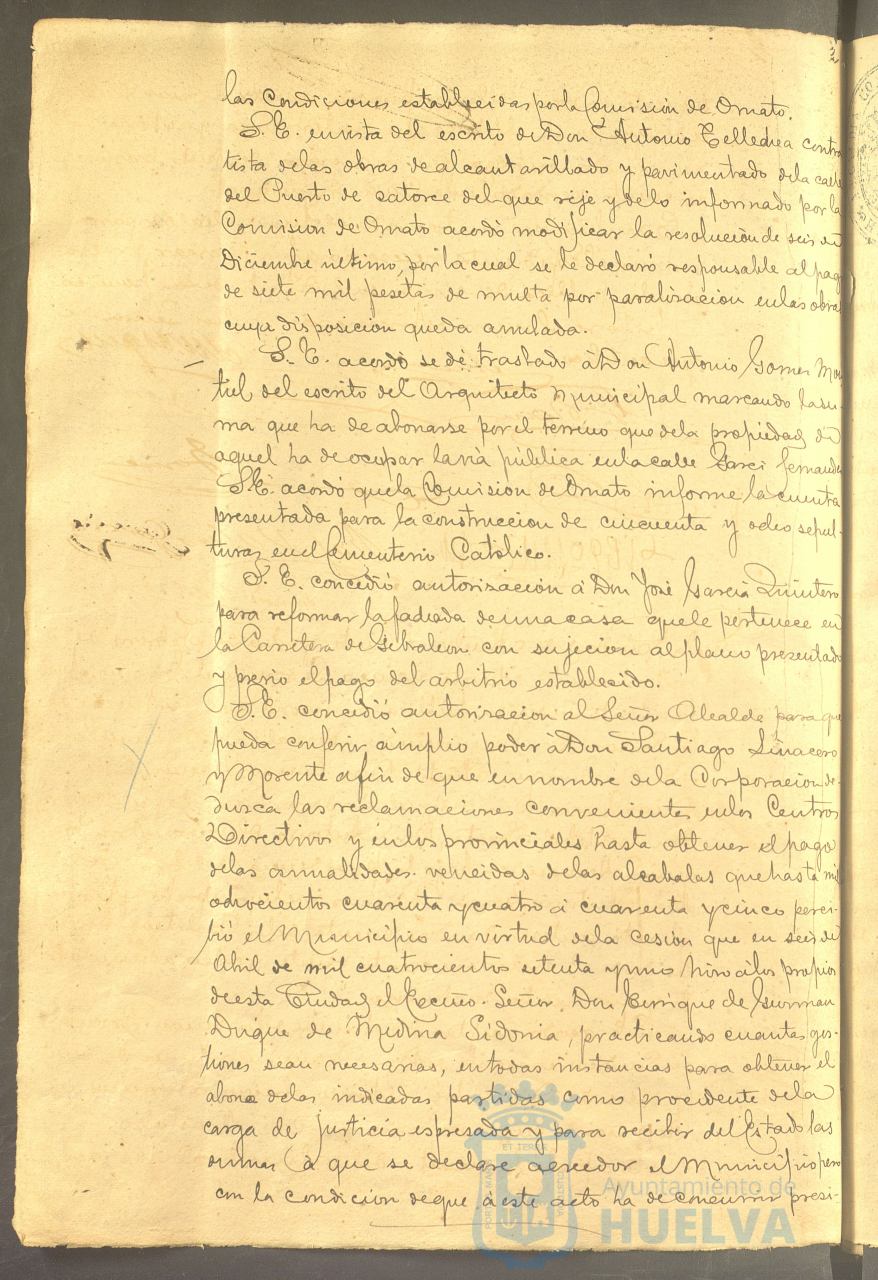 las Condiciones establecidas por la Comisión de Ornato.
S. E. en vista del escrito de Don Antonio Telledrea contra
tista de las obras de alcantarillado y pavimentado de la calle
del Puerto de catorce del que rije y de lo informado por la
Comision de Ornato acordó modificar la resolución de seis de
Diciembre último, por la cual se le declaró responsable al pago
de siete mil pesetas de multa por paralizacion en las obras
cuya disposicion queda anulada.
S. E. acordó se dé traslado á Don Antonio Gomez Mon
tiel del escrito del Arquitecto Municipal marcando la su-
ma que ha de abonarse por el terreno que de la propiedad de
aquel ha de ocupar la via pública en la calle Garci Fernandez
S. E. acordó que la Comision de Ornato informe la cuenta
presentada para la construccion de cincuenta y ocho sepul-
turas en el Cementerio Católico.
S. E. concedió autorización á Don José García Quintero
para reformar la fachada de una casa que le pertenece en
la Carretera de Gibraleon con sujecion al plano presentado
y previo el pago del arbitrio establecido.
S. E. concedió autorizacion al Señor Alcalde para que
pueda conferir ámplio poder á Don Santiago Linacero
y Morente a fin de que en nombre de la Corporacion de-
duzca las reclamaciones convenientes en los Centros
Directivos y en los provinciales hasta obtener el pago
de las anualidades vencidas de las alcabalas que hasta mil
ochocientos cuarenta y cuatro á cuarenta y cinco perci-
bió el Municipio en virtud de la cesion que en seis de
Abril de mil cuatrocientos setenta y uno hizo á los propios
de esta Ciudad el Excmo. Señor Don Enrique de Guzman
Duque de Medina Sidonia, practicando cuantas ges-
tiones sean necesarias, en todas instancias para obtener el
abono de las indicadas partidas como procedente de la
carga de justicia espresada y para recibir del Estado las
sumas á que se declare acreedor el Municipio pero
con la condicion de que á este acto ha de concurrir presi-
Ayuntamiento de
HUELVA